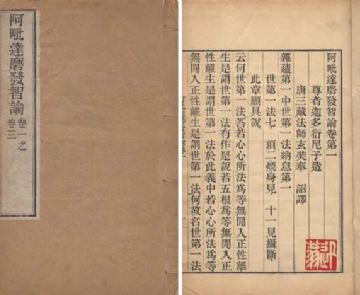 阿毗達磨發智論
卷一之
卷三
阿毗達磨發智論卷第一
尊者迦多衍尼子造
唐三藏法師玄奘奉 詔譯
雜蘊第一中世第一法納息第一
世第一法七 頂二煖身見 十一見攝斷
此章願具說
云何世第一法答若心心所法為等無間入正性離
生是謂世第一法有作是說若五根為等無間入正
性離生是謂世第一法於此義中若心心所法為等
無間入正性離生是謂世第一法何故名世第一法